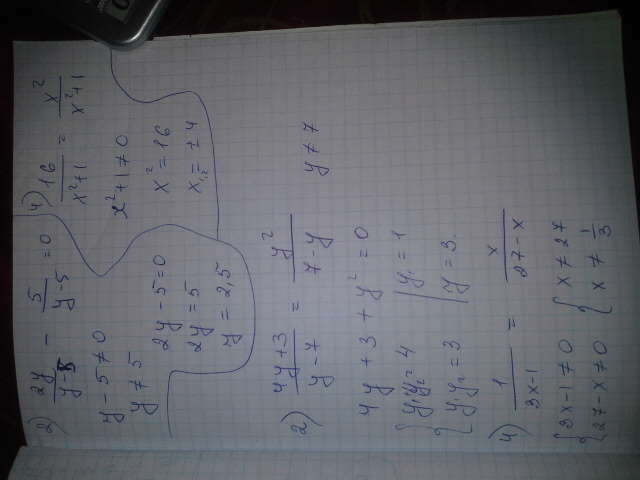 2) 2y/y-5 - 5/y-5 = 0
y - 5 ≠ 0
y ≠ 5
2y - 5 = 0
2y = 5
y = 2,5
4) 16/x²+1 = x²/x²+1
x²+1 ≠ 0
x² = 16
x₁,₂ = ±4
2) 4y+3/y-7 = y²/7-y   y ≠ 7
4y + 3 + y² = 0
{ y₁+y₂ = 4 | y₁ = 1
y₁y₂ = 3 | y = 3.
4) 1/3x-1 = x/27-x
{ 3x-1 ≠ 0 { x ≠ 27
27-x ≠ 0 x ≠ 1/3